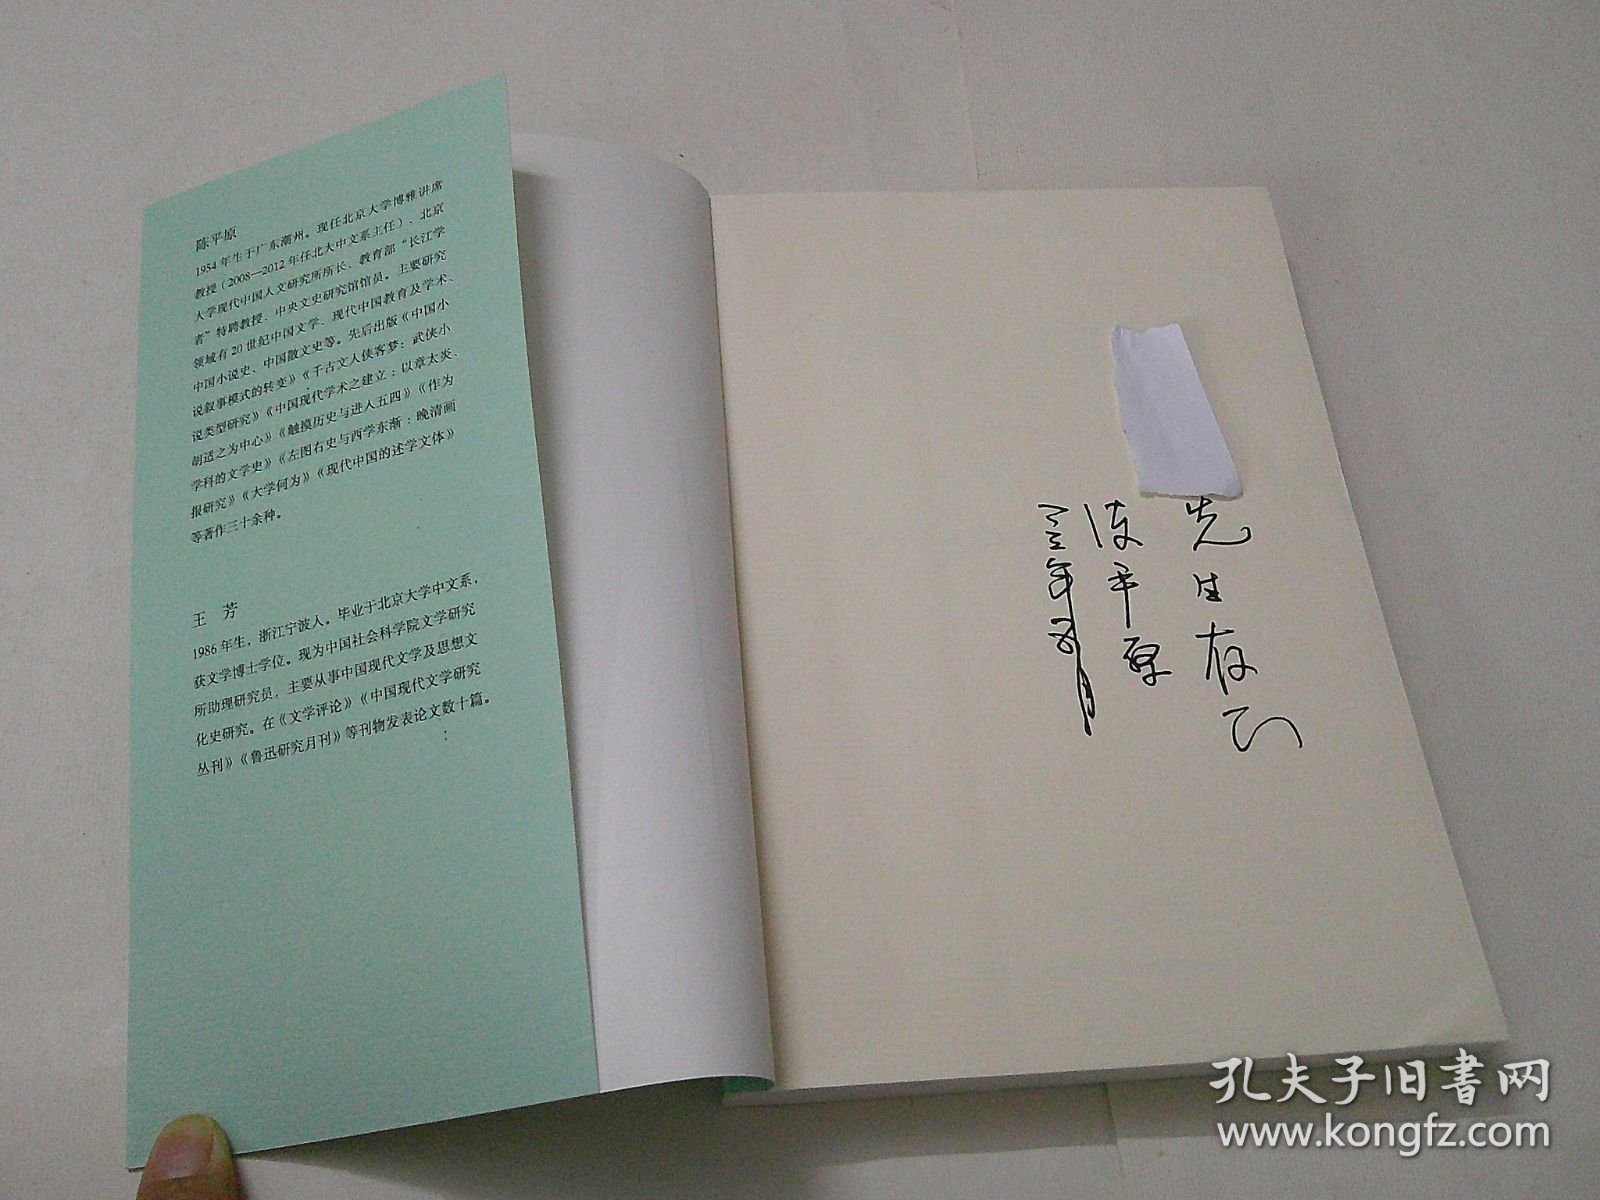 陈平原
1954年生于广东潮州。现任北京大学博雅讲席
教授（2008—2012年任北大中文系主任）、北京
大学现代中国人文研究所所长、教育部“长江学
者”特聘教授、中央文史研究馆馆员。主要研究
领域有20世纪中国文学、现代中国教育及学术、
中国小说史、中国散文史等。先后出版《中国小
说叙事模式的转变》《千古文人侠客梦：武侠小
说类型研究》《中国现代学术之建立：以章太炎、
胡适之为中心》《触摸历史与进入五四》《作为
学科的文学史》《左图右史与西学东渐：晚清画
报研究》《大学何为》《现代中国的述学文体》
等著作三十余种。
王 芳
1986年生，浙江宁波人。毕业于北京大学中文系，
获文学博士学位。现为中国社会科学院文学研究
所助理研究员，主要从事中国现代文学及思想文
化史研究。在《文学评论》《中国现代文学研究
丛刊》《鲁迅研究月刊》等刊物发表论文数十篇。
先生存正
陈平原
年五月
孔夫子旧书网
www.kongfz.com